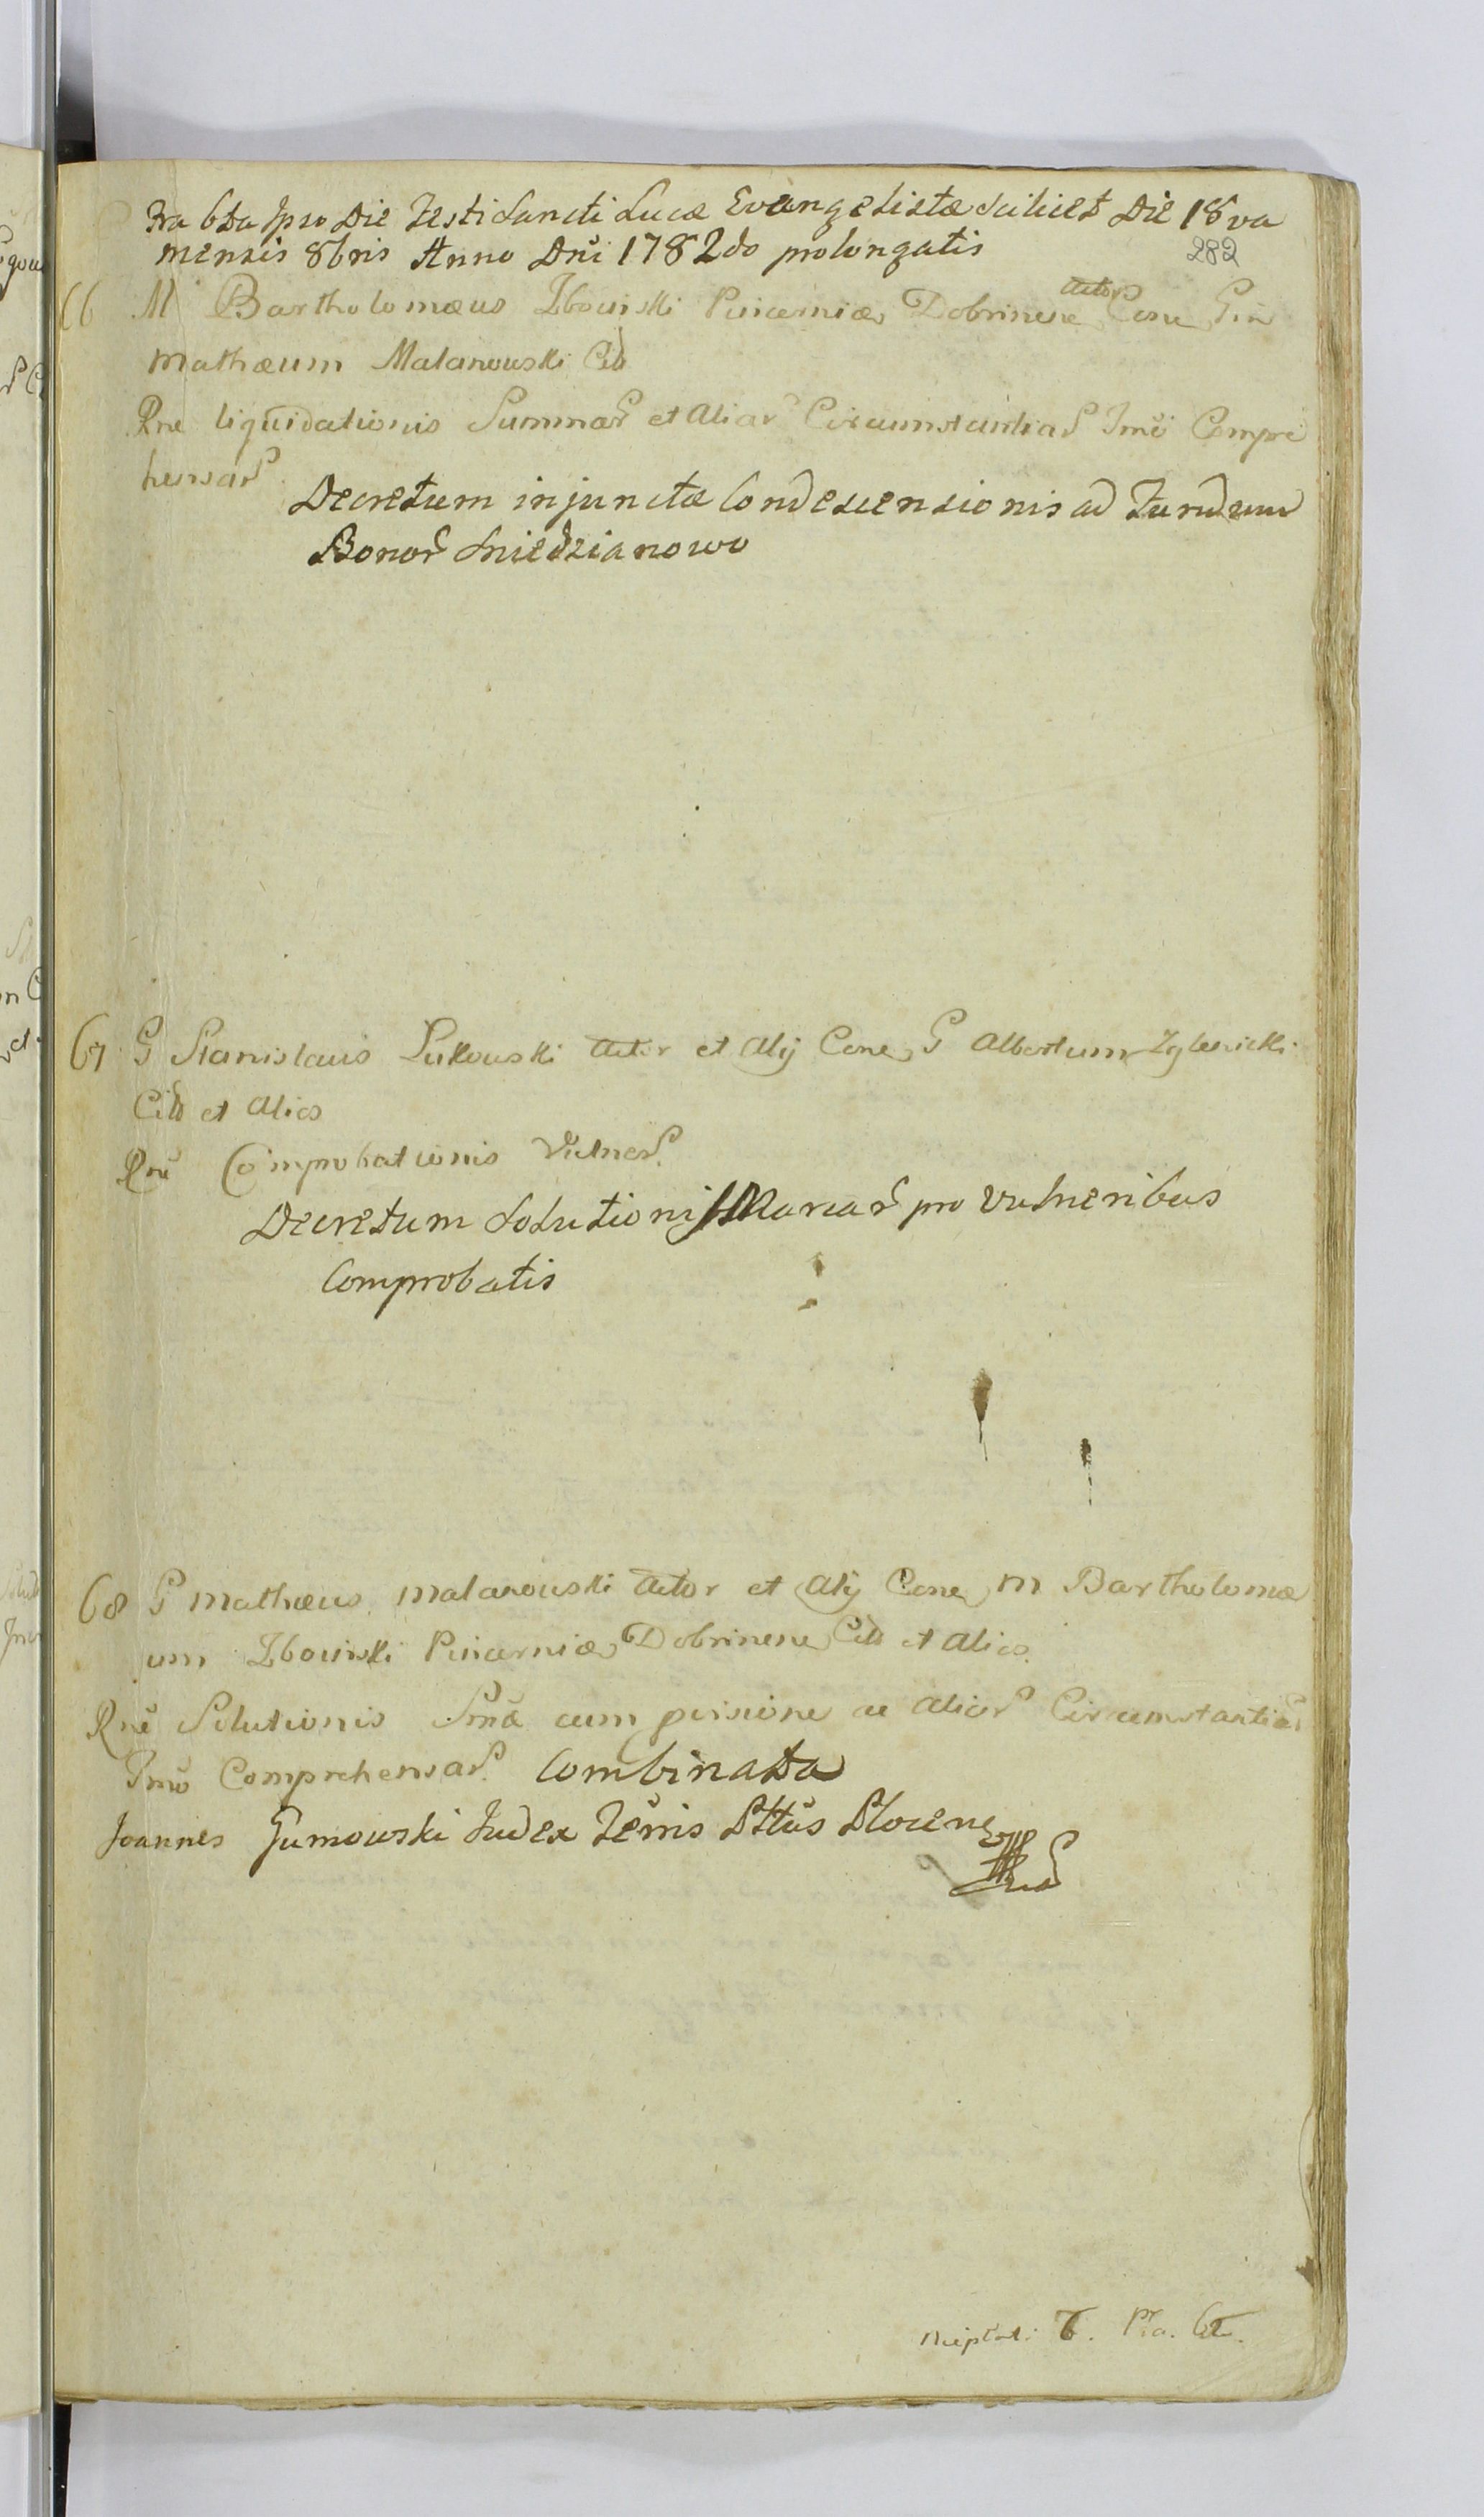 Fra 6ta Ipso Die Festi Sancti Lucæ Evangelistæ scilicet Die 18va
mensis 8bris Anno Dni 1782do prolongatis
282
66 M Bartholomæus Zbowiski Pincernia Dobrinene Actor Cone G
Mathæum Malanowski Citt
Rne liquidationis Summar et aliar Circumstantiar Imo Compre
hensar
Decretum injunctæ Condescensionis ad Fundum
Bonor Sniedzianowo
67 G Stanislaus Lukowski Actor et Alij Cone G Albertum Zglenicki
Citt et Alios
Rne Comprobationis Vulner
Decretum Solutionis Marcar pro Vulneribus
Comprobatis
68 G Mathæus Malanowski Actor et Alij Cone M Bartholomæ
um Zbowiski Pincernia Dobrinene Citt et Alios
Rne Solutionis Smæ cum provisione ac aliar Circumstantiar
Imo Comprehensar. Combinata
Joannes Gumowski Judex Tenis Pttus Plocens